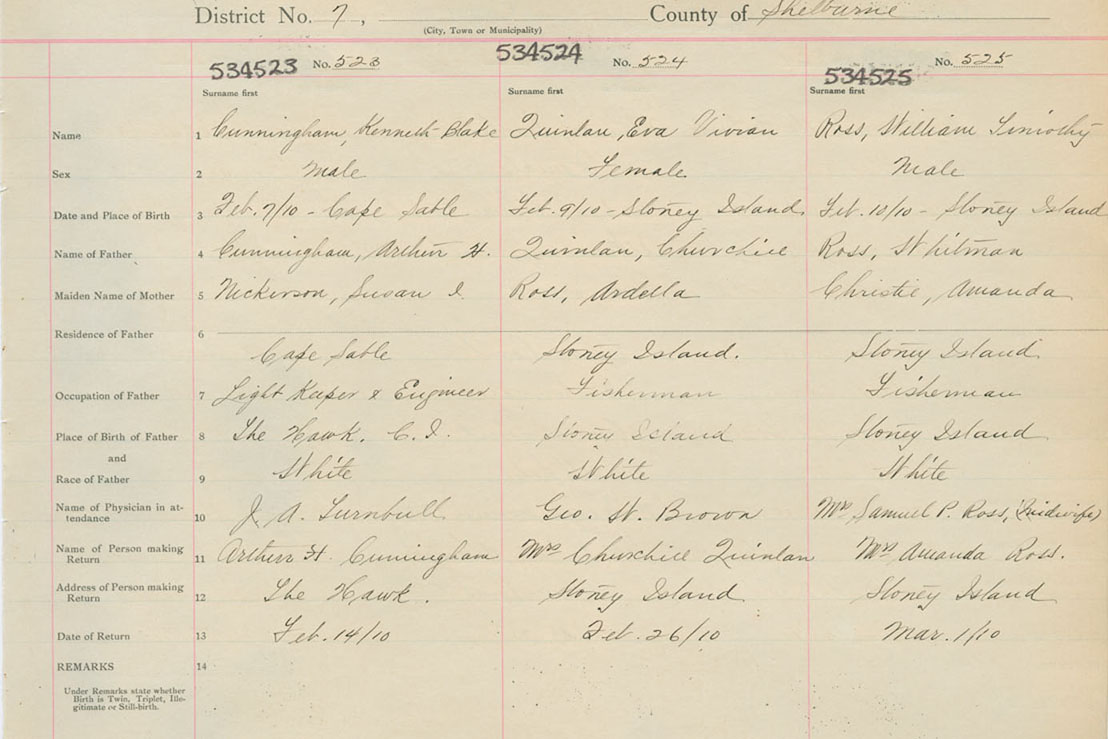 District No. 7, County of Shelburne
(City, Town or Municipality)
534523 No. 523 534524 No. 524 534525 No. 525
Surname first Surname first Surname first
Name 1 Cunningham, Kenneth Blake Quinlan, Eva Vivian Ross, William Timothy
Sex 2 Male Female Male
Date and Place of Birth 3 Feb. 7/10 - Cape Sable Feb. 9/10 - Stoney Island Feb. 10/10 - Stoney Island
Name of Father 4 Cunningham, Arthur H. Quinlan, Churchill Ross, Whitman
Maiden Name of Mother 5 Nickerson, Susan I Ross, Ardella Christie, Amanda
Residence of Father 6
Cape Sable Stoney Island. Stoney Island
Occupation of Father 7 Light Keeper & Engineer Fisherman Fisherman
Place of Birth of Father 8 The Hawk. C. I. Stoney Island Stoney Island
and
Race of Father 9 White White White
Name of Physician in at-
tendance 10 J. A. Turnbull Geo. W. Brown Mrs Samuel P. Ross, (Midwife)
Name of Person making
Return 11 Arthur H. Cunningham Mrs Churchill Quinlan Mrs Amanda Ross.
Address of Person making
Return 12 The Hawk. Stoney Island Stoney Island
Date of Return 13 Feb. 14/10 Feb. 26/10 Mar. 1/10
REMARKS 14
Under Remarks state whether
Birth is Twin, Triplet, Ille-
gitimate or Still-birth.